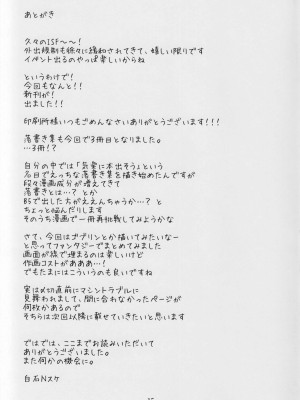 あとがき
久々のISF〜〜!
外出規制も徐々に緩和されてきて、嬉しい限りです
イベント出るのやっぱ楽しいからね
というわけで!
今回もなんと!!
新刊が!
出ました!!
印刷所様いつもごめんなさいありがとうございます!!!
落書き集も今回で3冊目となりました。
…3冊!?
自分の中では「気楽に本出そう」という
名目でえっちな落書き集を描き始めたんですが
段々漫画成分が増えてきて
落書きとは…? とか
B5で出した方がええんちゃうか…? と
ちょっと悩んだりします
そのうち漫画で一冊再挑戦してみようかな
さて、今回はゴブリンとか描いてみたいなー
と思ってファンタジーでまとめてみました
画面が線で埋まるのは楽しいけど
作画コストがあああ…!
でもたまにはこういうのも良いですね
実は〆切直前にマシントラブルに
見舞われまして、間に合わなかったページが
何枚かあるので
そちらは次回以降に載せていきたいと思います
では、ここまでお読みいただいて
ありがとうございました。
また何かの機会に。
白石Nスケ